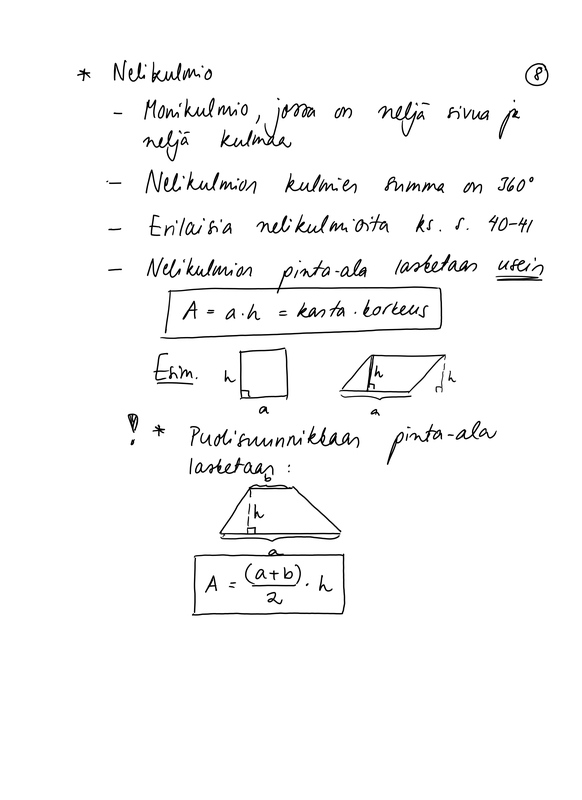 * Nelikulmio
8
- Monikulmio, jossa on neljä sivua ja
neljä kulmaa
- Nelikulmion kulmien summa on 360°
- Erilaisia nelikulmioita ks. s. 40-41
- Nelikulmion pinta-ala lasketaan usein
A = a·h = kanta·korkeus
Esim. h a h h a
! * Puolisuunnikkaan pinta-ala
lasketaan :
b
h
a
A = (a+b)/2 · h